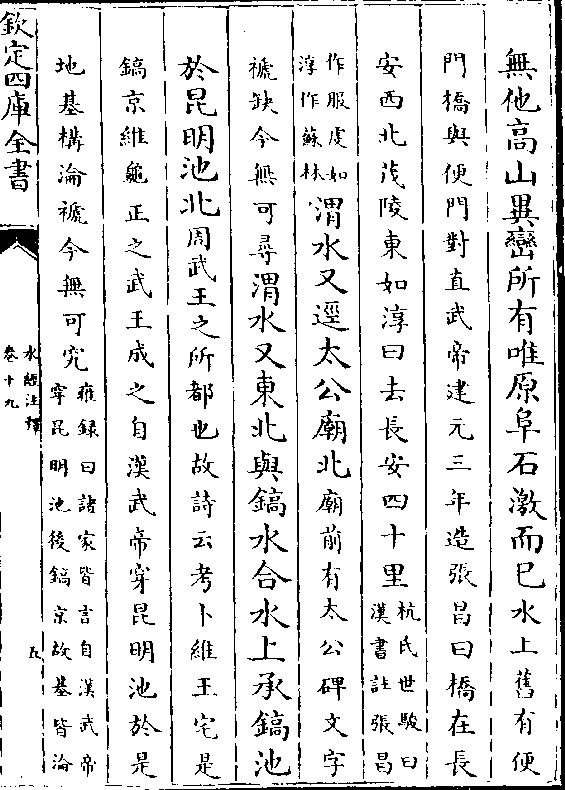 無他高山異巒所有唯原阜石激而已水上舊有便
門橋與便門對直武帝建元三年造張昌曰橋在長
安西北茂陵東如淳曰去長安四十里杭氏世駿曰
漢書註張昌
作服虔如
淳作蘇林渭水又逕太公廟北廟前有太公碑文字
褫缺今無可尋渭水又東北與鎬水合水上承鎬池
於昆明池北周武王之所都也故詩云考卜維王宅是
鎬京維龜正之武王成之自漢武帝穿昆明池於是
地基構淪褫今無可究雍録曰諸家皆言自漢武帝
穿昆明池後鎬京故基皆淪
欽定四庫全書
水經注釋
卷十九
五